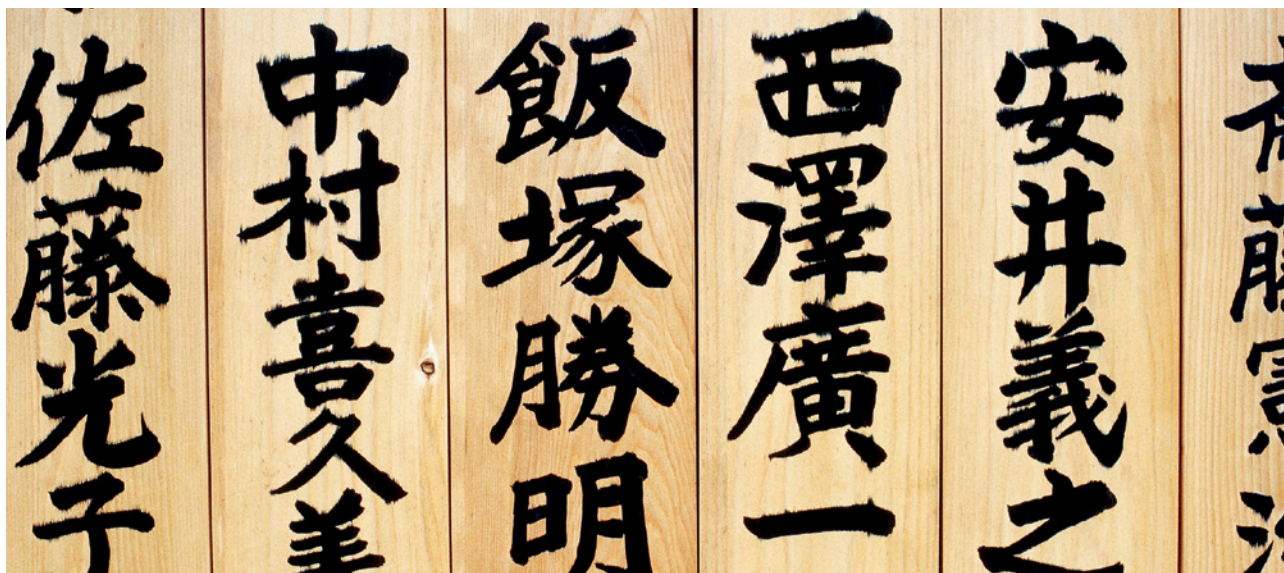 斎藤憲治
安井義之
西澤廣一
飯塚勝明
中村喜久美
佐藤光子